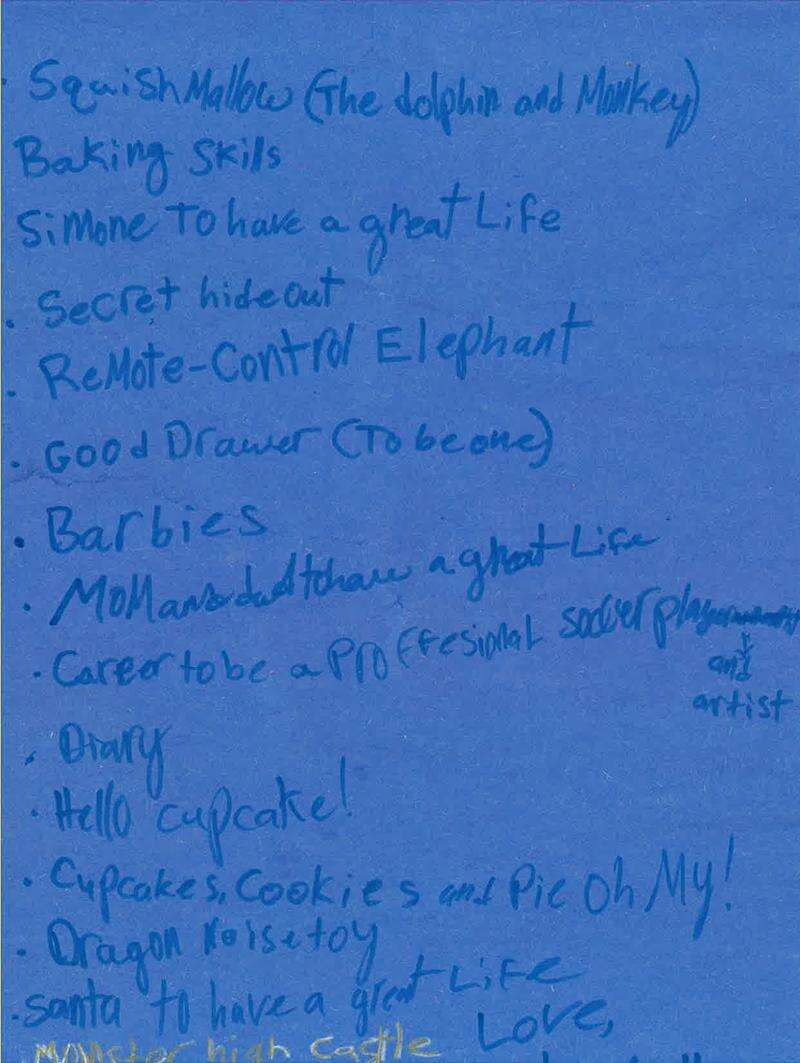 · SquishMallow (The dolphin and Monkey)
Baking Skills
Simone To have a great Life
· Secret hideout
· ReMote-Control Elephant
· Good Drawer (To be one)
· Barbies
· MoM and dad to have a great Life
· Career to be a Proffesional soccer player
and
artist
· Diary
· Hello cupcake!
· Cupcakes, Cookies and Pie Oh My!
· Dragon Noise toy
· santa to have a great Life
Love,
Monster high Castle